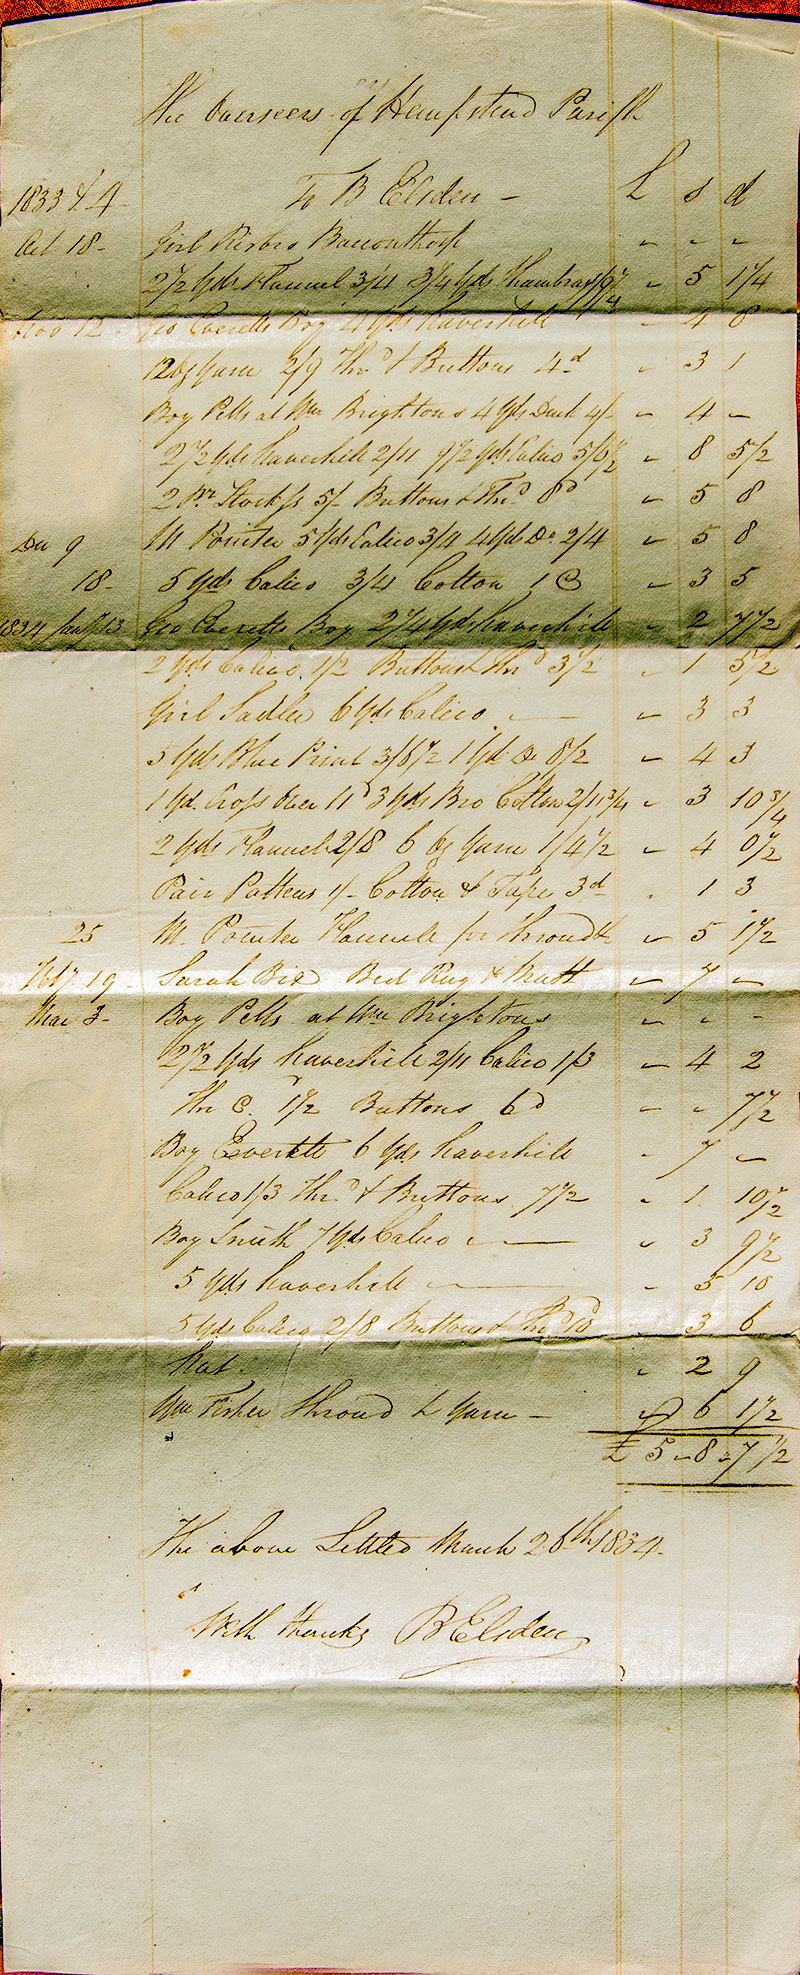 The Overseers of Hempstead Parish
1833 & 4 To B Elsden — £ s d
Oct 18 - Girl Risbro - - -
2 1/2 Yds Flannel 3/4 3/4 Yds - 5 1 1/4
Nov 12 Geo Everetts Boy 4 Yds Haverhill - 4 8
12 oz Yarn 2/9 Thrd & Buttons 4d - 3 1
Boy Pells at Wm Brightons 4 Yds Duck 4/- - 4 -
2 1/2 Yds Haverhill 2/11 9 1/2 Yds Calico 5/6 1/2 - 8 5 1/2
2 Pr Stockgs 5/- Buttons & Thrd 8d - 5 8
Dec 9 M Pointer 5 Yds Calico 3/4 4 Yds Do 2/4 - 5 8
18 - 5 Yds Calico 3/4 Cotton 1d - 3 5
1834 Jany 13 Geo Everetts Boy 2 1/4 Yds Haverhill - 2 7 1/2
2 Yds Calico 1/2 Buttons & Thrd 3 1/2 - 1 5 1/2
Girl Sadler 6 Yds Calico — - 3 3
5 Yds Blue Print 3/6 1/2 1 Yd Do 8 1/2 - 4 3
1 Yd Cross Over 11d 3 Yds Bro Cotton 2/11 3/4 - 3 10 3/4
2 Yds Flannel 2/8 6 oz Yarn 1/4 1/2 - 4 0 1/2
Pair Pattens 1/- Cotton & Tape 3d - 1 3
25 M. Pointer Flannell for Shroud & - 5 1 1/2
Feby 19 - Sarah Bird Bed Rug & Matt - 7 -
Mar 3 - Boy Pells at Wm Brightons - - -
2 1/2 Yds Haverhill 2/11 Calico 1/3 - 4 2
Thr C. 1 1/2 Buttons 6d - - 7 1/2
Boy Everett 6 Yds Haverhill - 7 -
Calico 1/3 Thrd & Buttons 7 1/2 - 1 10 1/2
Boy Smith 7 Yds Calico — - 3 9 1/2
5 Yds Haverhill — - 5 10
5 Yds Calico 2/8 Buttons & Thrd 10d - 3 6
Hat - 2 9
Wm Fisher Shroud & Yarn — - 6 1 1/2
£ 5 - 8 - 7 1/2
The above Settled March 26th 1834 -
With thanks B Elsden